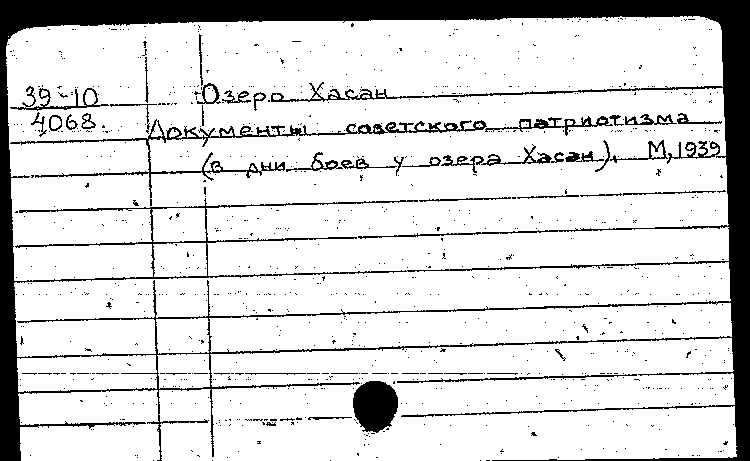 39-10 Озеро Хасан
4068. Документы советского патриотизма
(в дни боев у озера Хасан). М, 1939